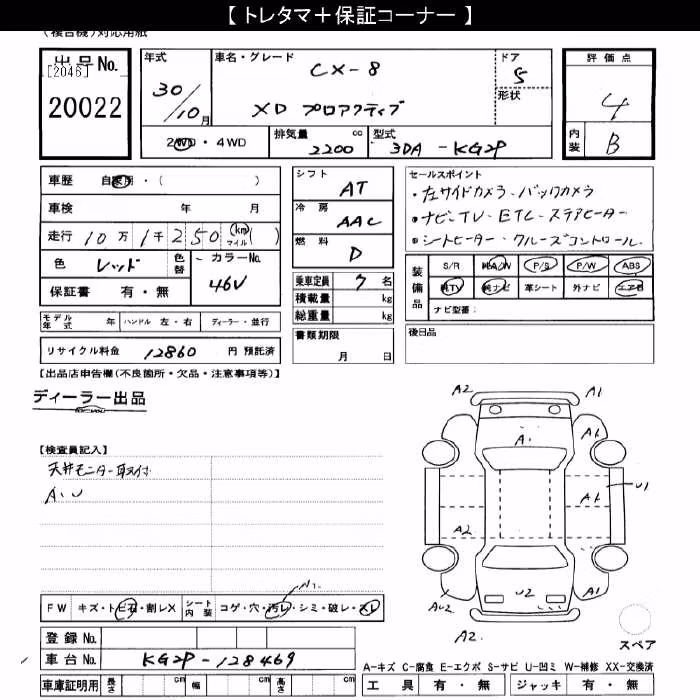 【 トレタマ＋保証コーナー 】
(複合機)対応用紙
出品No.
[2046]
20022
年式
30/10月
車名・グレード
CX-8
XD プロアクティブ
ドア
5
形状
評価点
4
内装
B
2WD・4WD
排気量
2200 cc
型式
3DA-KG2P
車歴 自家用・( )
車検 年 月
走行 10万1千250 (km マイル) ( )
色 レッド 色替
カラーNo.
46V
保証書 有・無
モデル年式 年 ハンドル 左・右 ディーラー・並行
リサイクル料金 12860 円 預託済
シフト AT
冷房 AAC
燃料 D
乗車定員 7 名
積載量 kg
総重量 kg
書類期限
月 日
セールスポイント
・左サイドカメラ・バックカメラ
・ナビ・TV・ETC・ステアヒーター
・シートヒーター・クルーズコントロール.
装備品
S/R 純A/W P/S P/W ABS
純TV 純ナビ 革シート 外ナビ エアB
ナビ型番：
後日品
【出品店申告欄(不良箇所・欠品・注意事項等)】
ディーラー出品
【検査員記入】
天井モニター取付
A.U
A2 A1
A. A1
A1 U1
A2
U2 A1
AU2
A2.
スペア
FW キズ・トビ石・割レX シート内装 コゲ・穴・汚レ・シミ・破レ・スレ
登録No.
車台No. KG2P-128469
車庫証明用 長さ cm 幅 cm 高さ cm
A-キズ C-腐食 E-エクボ S-サビ U-凹ミ W-補修 XX-交換済
工具 有・無 ジャッキ 有・無